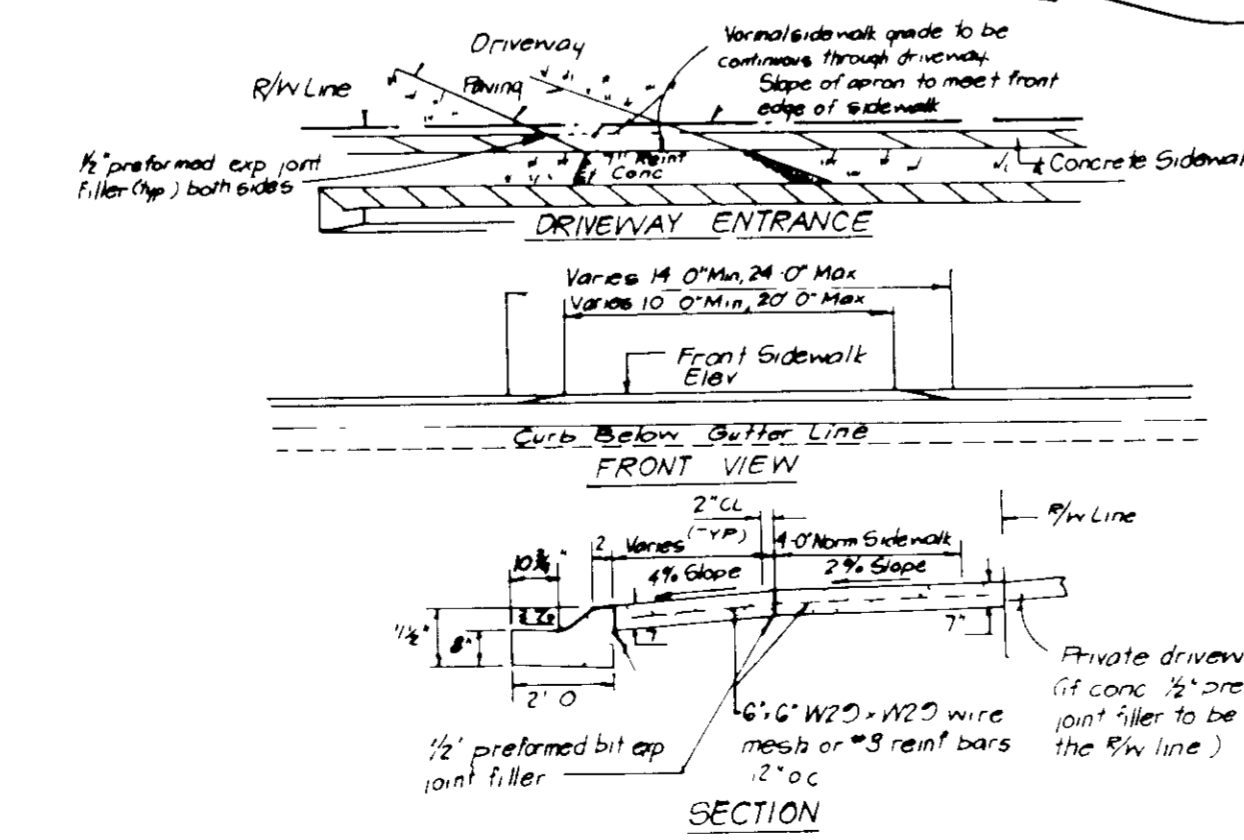 Driveway
Normal sidewalk grade to be
continuous through driveway
Slope of apron to meet front
edge of sidewalk
R/W Line
Paving
1/2" preformed exp joint
filler (typ) both sides
7" Reint
Conc
Concrete Sidewalk
DRIVEWAY ENTRANCE
Varies 14 0" Min, 24-0" Max
Varies 10 0" Min, 20' 0" Max
Front Sidewalk
Elev
Curb Below Gutter Line
FRONT VIEW
2" CL
(TYP)
R/W Line
2
Varies
4-0" Norm Sidewalk
10 3/4"
4% Slope
2% Slope
11 1/2"
8"
7
7"
2' 0
Private drivew
(if conc 1/2" pre
joint filler to be
the R/W line)
6"x6" W2.9 x W2.9 wire
mesh or #3 reinf bars
12" OC
1/2' preformed bit exp
joint filler
SECTION